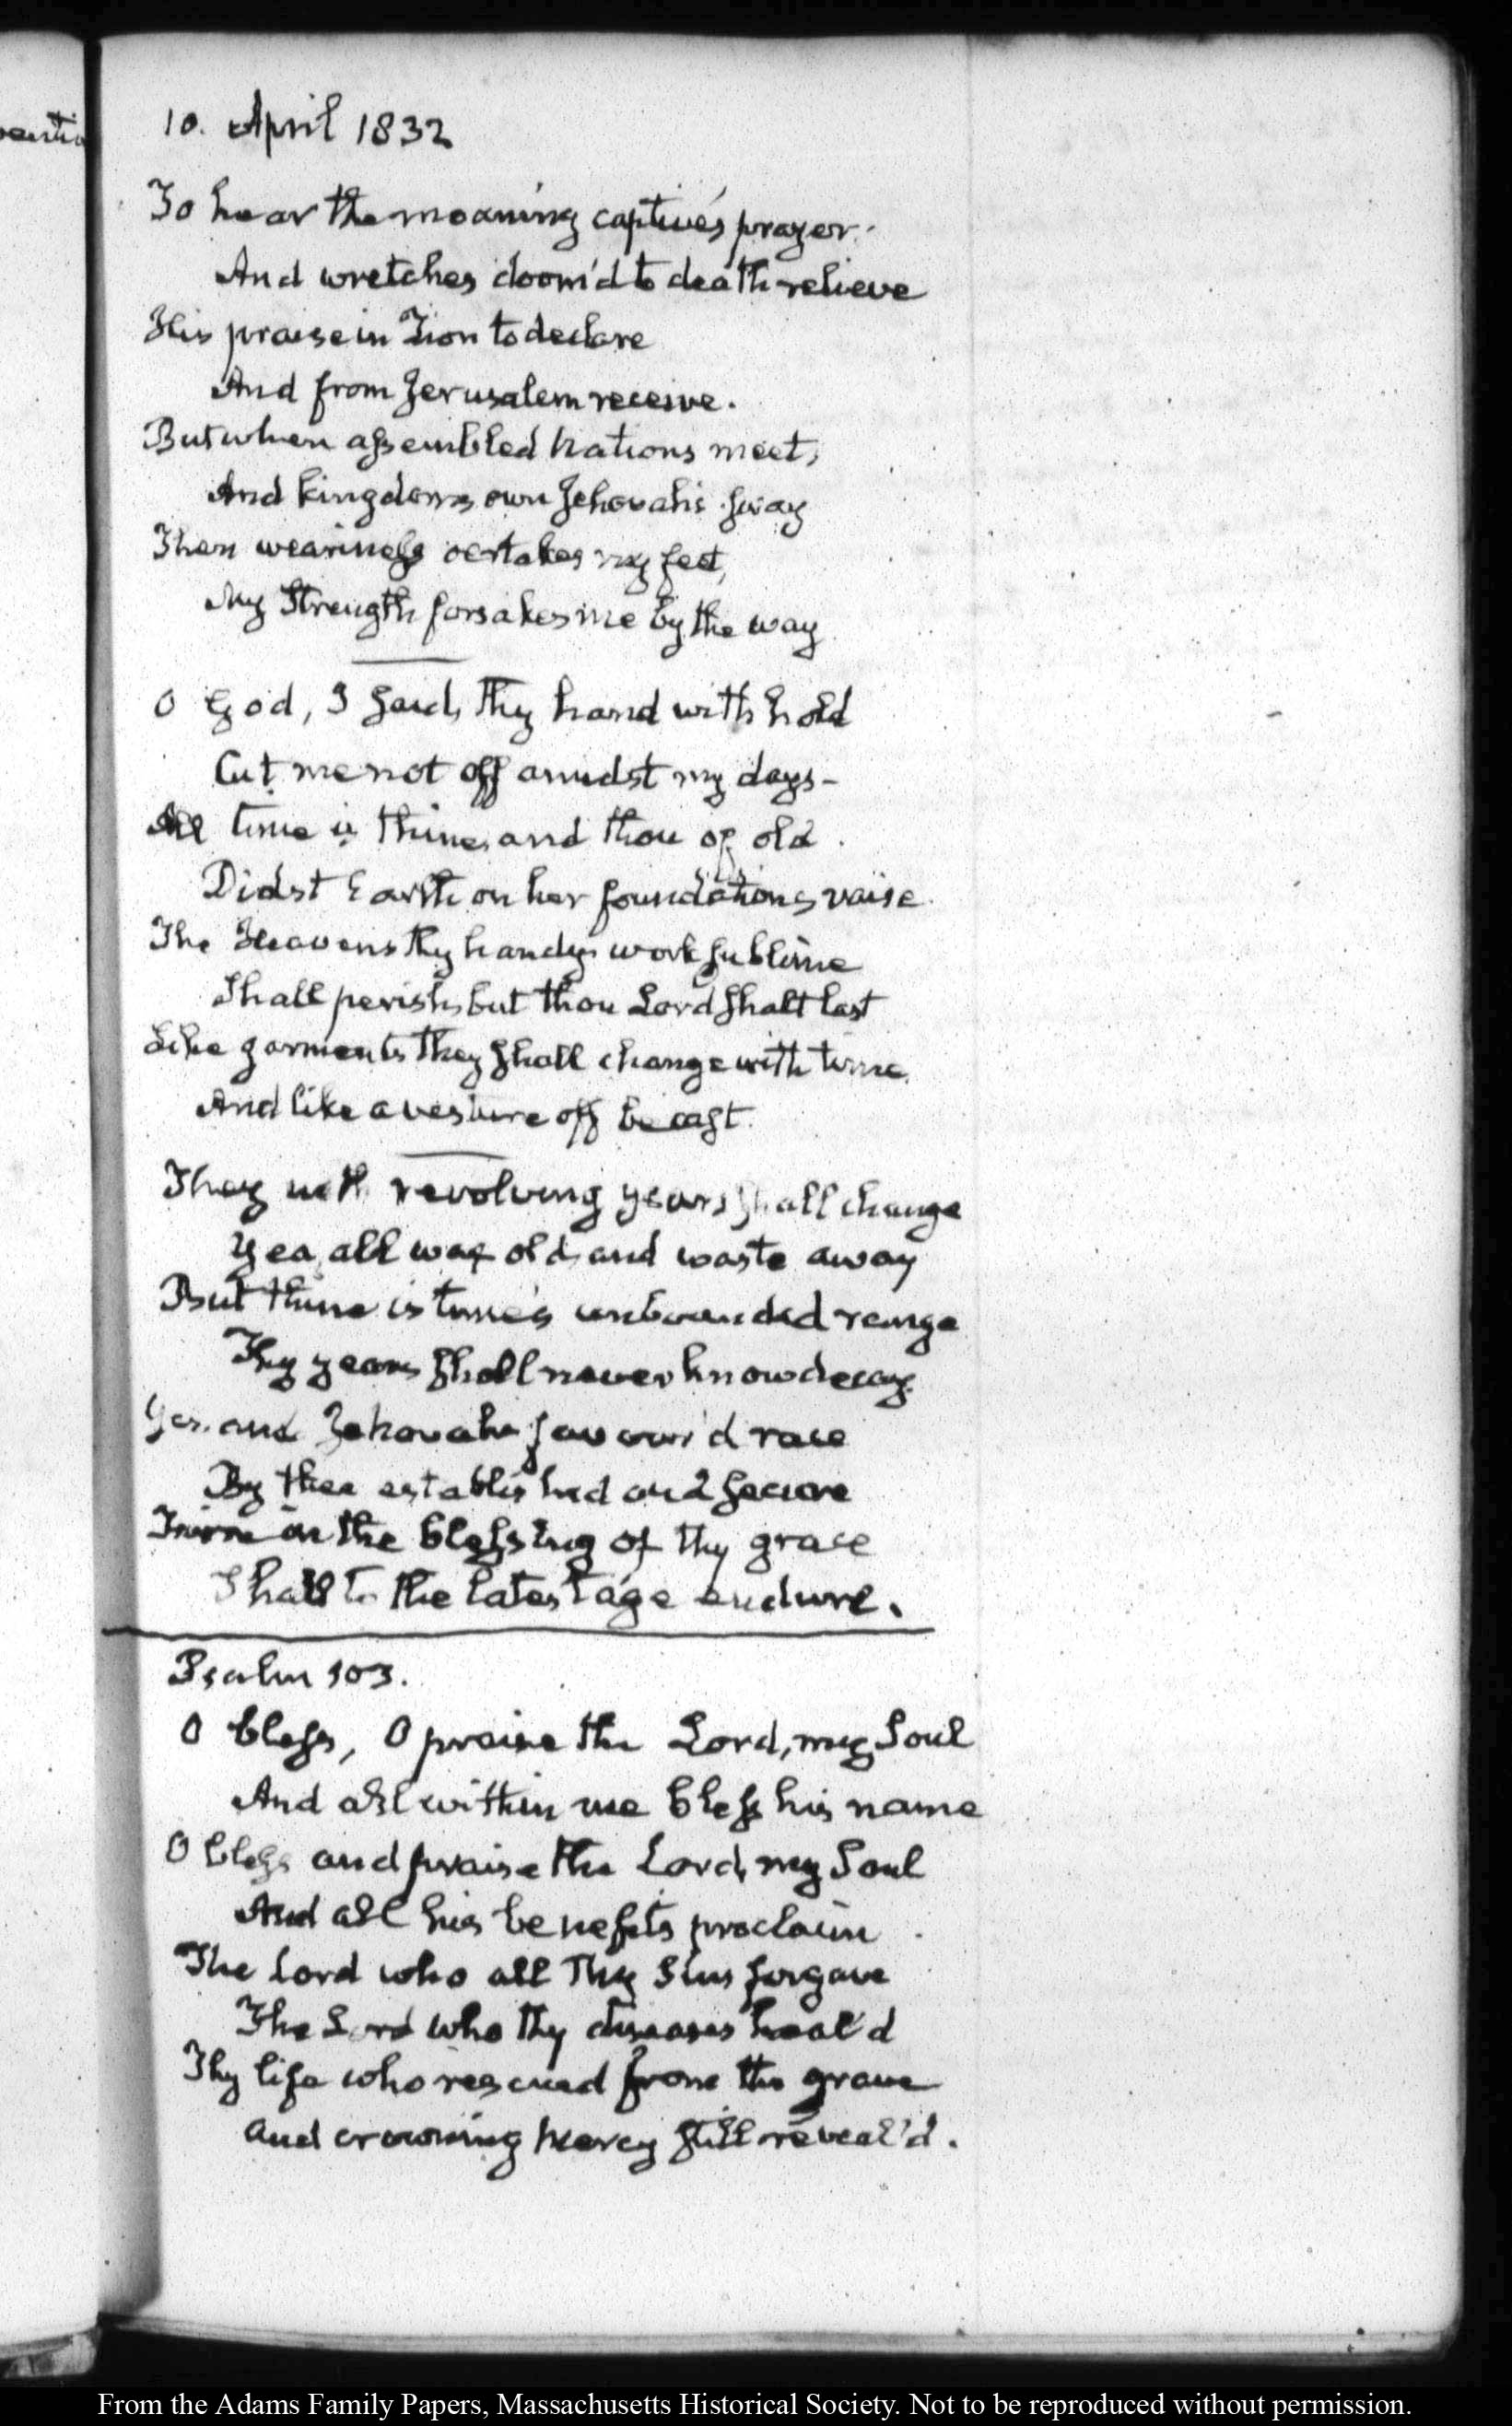 10. April 1832
To hear the moaning captive's prayer.
And wretches doom'd to death relieve
His praise in Zion to declare
And from Jerusalem receive.
But when assembled Nations meet,
And kingdoms own Jehovah's sway
Then weariness oertakes my feet,
My Strength forsakes me by the way
O God, I said, thy hand withhold
Cut me not off amidst my days-
All time is thine, and thou of old.
Didst Earth on her foundations raise.
The Heavens thy handy work sublime
Shall perish, but thou Lord shalt last
Like garments they shall change with time.
And like a vesture off be cast.
They with revolving years shall change
Yea, all wax old, and waste away
But thine is time's unbounded range
Thy years shall never know decay.
Yes. and Jehovah favour'd race
By thee established and secure
Firm in the blessing of thy grace
Shall to the latest age endure.
Psalm 103.
O bless, O praise the Lord, my Soul
And all within me bless his name
O bless and praise the Lord, my Soul
And all his benefits proclaim
The Lord who all thy sins forgave
The Lord who thy diseases heal'd
Thy life who rescued from the grave
And crowning Mercy still reveal'd.
From the Adams Family Papers, Massachusetts Historical Society. Not to be reproduced without permission.